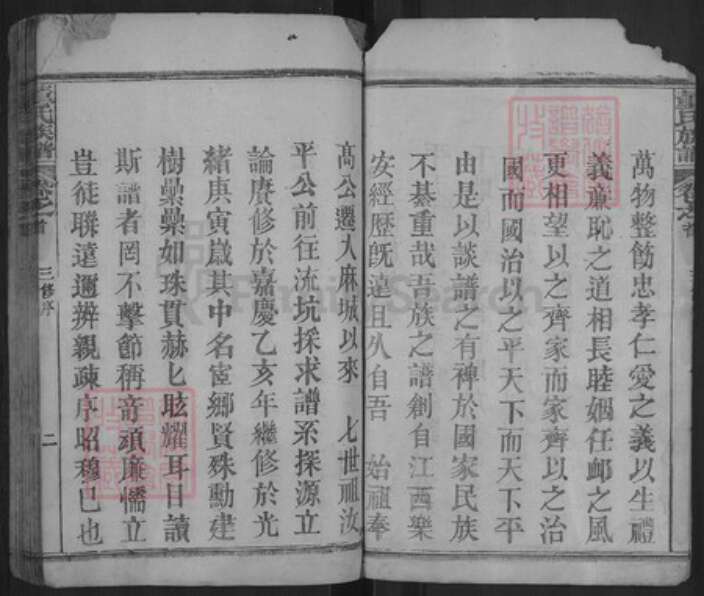 萬物整飭忠孝仁愛之義以生禮
義廉恥之道相長睦婣任卹之風
更相望以之齊家而家齊以之治
國而國治以之平天下而天下平
由是以談譜之有裨於國家民族
不綦重哉吾族之譜創自江西樂
安經歷旣遠且久自吾 始祖奉
高公遷入麻城以來 七世祖汝
平公前往流坑採求譜系探源立
論賡修於嘉慶乙亥年繼修於光
緒庚寅歲其中名宦鄉賢殊勳建
樹纍纍如珠貫赫匕眩耀耳目讀
斯譜者罔不擊節稱奇頑廉懦立
豈徒聯遠邇辨親疎序昭穆已也
氏族譜
卷之首
三修序
二
FamilySearch